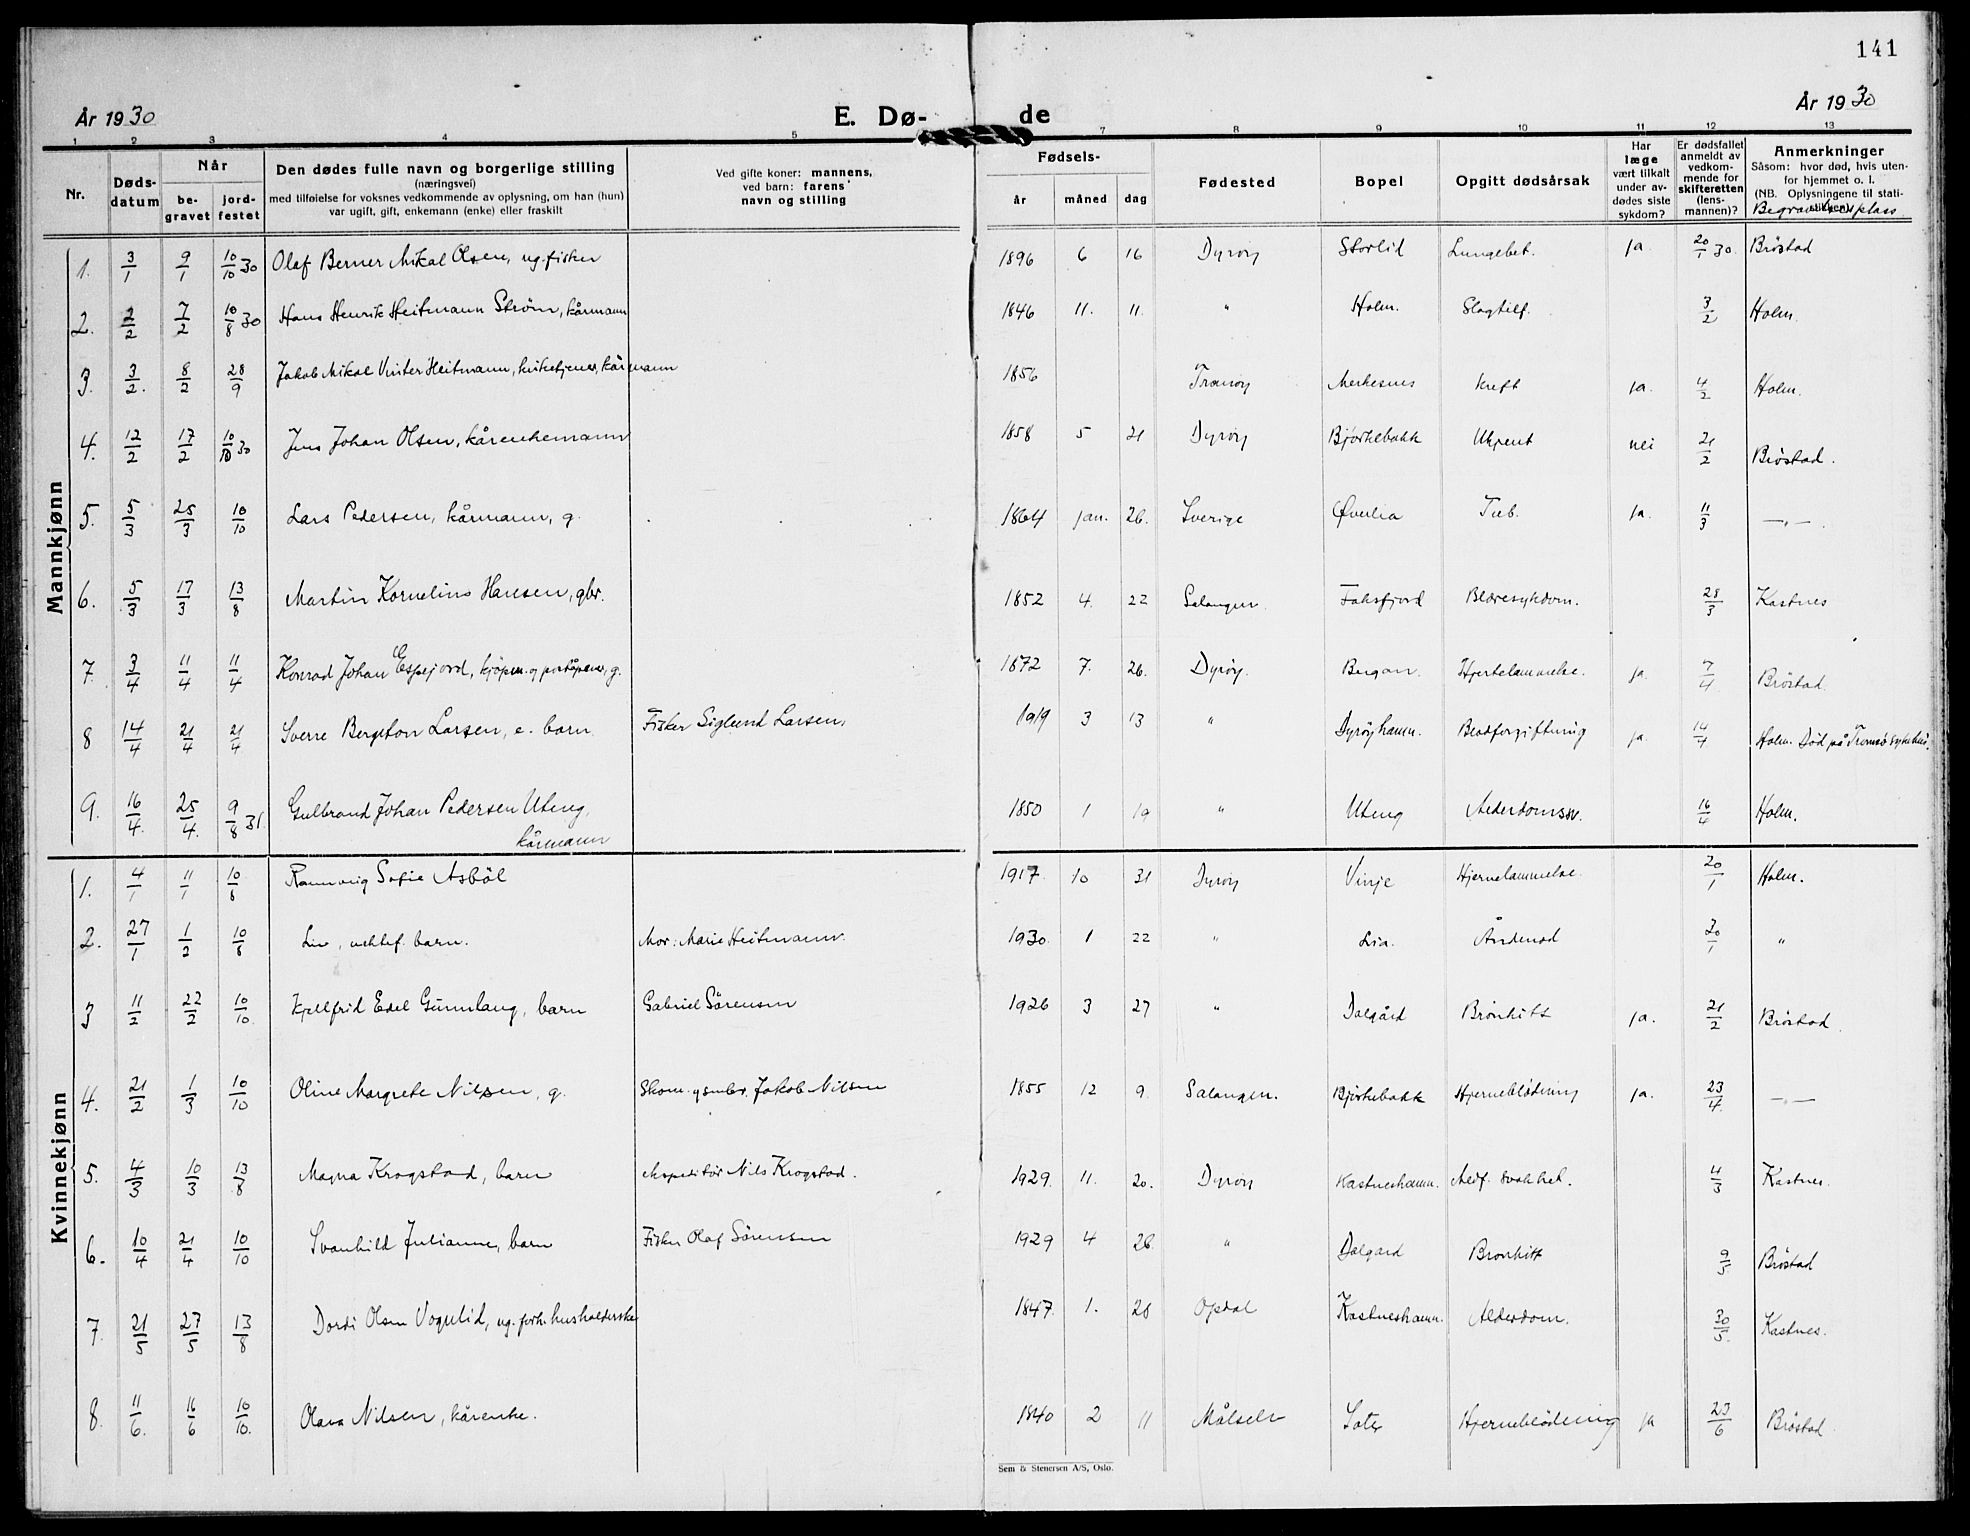 141
År 1930 E. Dø- de År 1930
1 2 3 4 5 7 8 9 10 11 12 13
Nr. Døds-datum Når be-gravet jord-festet Den dødes fulle navn og borgerlige stilling (næringsvei) med tilføielse for voksnes vedkommende av oplysning, om han (hun) var ugift, gift, enkemann (enke) eller fraskilt Ved gifte koner: mannens, ved barn: farens navn og stilling Fødsels- år måned dag Fødested Bopel Opgitt dødsårsak Har læge vært tilkalt under av-dødes siste sykdom? Er dødsfallet anmeldt av vedkom-mende for skifteretten (lens-mannen)? Anmerkninger Såsom: hvor død, hvis uten-for hjemmet o. l. (NB. Oplysningene til stati-stikken) Begravelsesplass
Mannkjønn
1. 3/1 9/1 10/10 30 Olaf Berner Mikal Olsen, ug. fisker 1896 6 16 Dyrøy Storlid Lungebet. ja. 20/1 30. Brøstad
2. 2/2 7/2 10/8 30 Hans Henrik Heitmann Strøm, kårmann 1846 11. 11. " Holm. Slagtilf. 3/2 Holm.
3. 3/2. 8/2 28/9 Jakob Mikal Vinter Heitmann, kirketjener, kårmann 1856 Tranøy Merkesnes kreft ja. 4/2 Holm.
4. 12/2 17/2 10/10 30 Jens Johan Olsen, kårenkemann 1858 5 21 Dyrøy Bjørkebakk Ukjent nei 21/2 Brøstad.
5. 5/3 25/3 10/10 Lars Pedersen, kårmann, g. 1864 jan. 26. Sverige Øverlia Tub. ja. 11/3 —„—.
6. 5/3 17/3 13/8 Martin Kornelius Hansen, gbr. 1852 4. 22 Salangen. Faksfjord Blæresykdom. 28/3 Kastnes
7. 3/4 11/4 11/4 Konrad Johan Espejord, kjøpm. og poståpner, g. 1872 7. 26. Dyrøy. Bergan. Hjertelammelse. ja. 7/4 Brøstad.
8 14/4 21/4 21/4 Sverre Bergeton Larsen, e. barn. Fisker Siglund Larsen. 1919 3 13 " Dyrøyhamn. Blodforgiftning ja. 14/4 Holm. Død på Tromsø sykehus.
9. 16/4. 25/4. 9/8 31. Gulbrand Johan Pedersen Uteng, 1850 1 19 " Uteng Alderdomssv. 16/4 Holm.
kårmann
Kvinnekjønn
1. 4/1 11/1 10/8 Rannveig Sofie Asbøl 1917 10 31 Dyrøy Vinje Hjernelammelse. 20/1 Holm.
2. 27/1 1/2 10/8 Liv, uektef. barn. Mor: Marie Heitmann. 1930. 1 22 " Lia. Åndenød 20/1 "
3 11/2 22/2 10/10. Kjellfrid Edel Gunnlaug, barn Gabriel Sørensen 1926 3 27 " Dalgård Bronkitt ja. 21/2 Brøstad.
4. 21/2 1/3 10/10 Oline Margrete Nilsen, g. Skom. og småbr. Jakob Nilsen 1855 12 9. Salangen. Bjørkebakk Hjerneblødning ja. 23/4. —„—
5. 4/3 10/3 13/8 Magna Krogstad, barn Ekspeditør Nils Krogstad. 1929. 11. 20. Dyrøy Kastneshamn. Medf. svakhet. 4/3 Kastnes.
6. 10/4 21/4 10/10 Svanhild Julianne, barn Fisker Olaf Sørensen 1929 4 28. " Dalgard Bronkitt 9/5 Brøstad
7. 21/5 27/5 13/8 Dordi Olsen Vognlid, ug. forh. husholderske 1847. 1. 28 Opdal Kastneshamn. Alderdom. 30/5. Kastnes.
8. 11/6. 16/6 10/10. Olava Nilsen, kårenke. 1840 2 11 Målselv Sæter Hjerneblødning ja 23/6 Brøstad.
Sem & Stenersen A/S, Oslo.